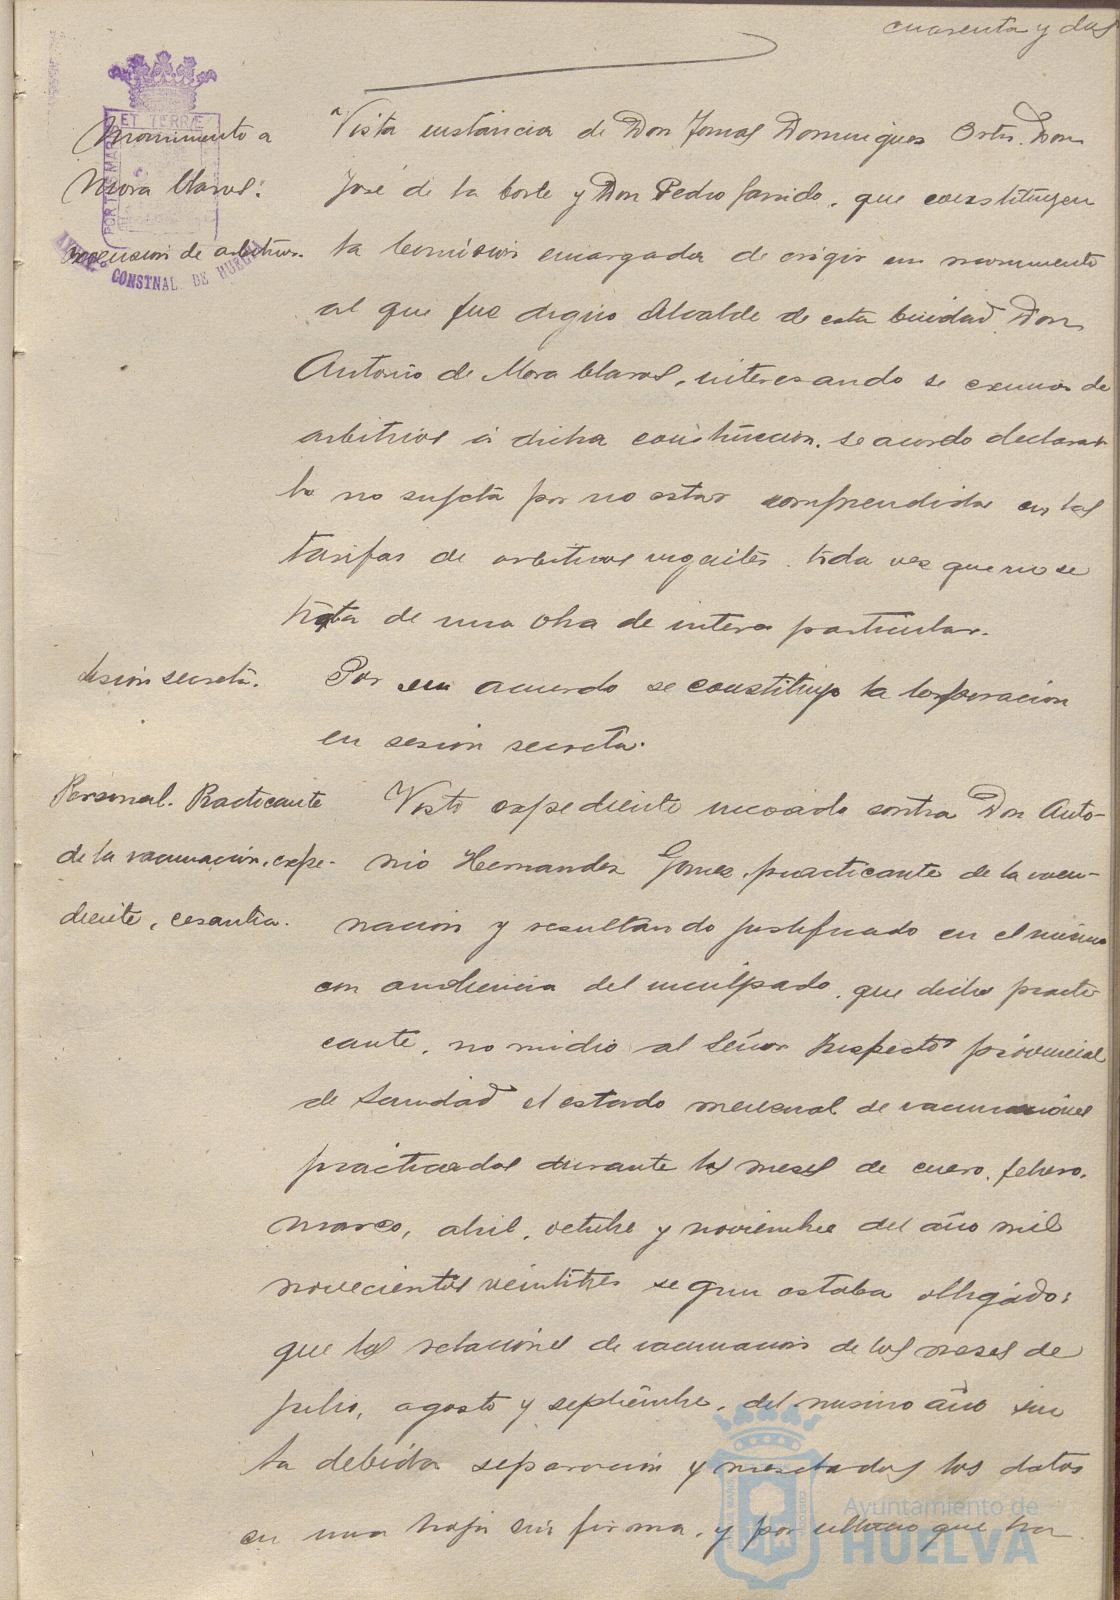 cuarenta y dos
Monumento a
Mora Claros:
exencion de arbitrios.
ET TERRÆ
CONSTNAL DE HUELVA
Vista instancia de Don Tomas Dominguez Ortiz. Don
José de la Corte y Don Pedro Garrido, que constituyen
la Comision encargada de erigir un monumento
al que fue digno Alcalde de esta Ciudad Don
Antonio de Mora Claros, interesando se exima de
arbitrios á dicha construccion, se acordo declarar
la no sujeta por no estar comprendida en las
tarifas de arbitrios vigentes, toda vez que no se
trata de una obra de interes particular.
Sesion secreta.
Por su acuerdo se constituyo la Corporacion
en sesion secreta.
Personal. Practicante
de la vacunacion, expe-
diente, cesantia.
Visto expediente incoado contra Don Anto-
nio Hernandez Gomez, practicante de la vacu-
nacion y resultando justificado en el mismo
con audiencia del inculpado, que dicho practi
cante, no midio al Señor Inspector provincial
de Sanidad el estado mensual de vacunaciones
practicadas durante los meses de enero, febrero,
marzo, abril, octubre y noviembre del año mil
novecientos veintitres segun estaba obligado;
que las relaciones de vacunacion de los meses de
julio, agosto y septiembre, del mismo año sin
la debida separacion y mezclados los datos
en una hoja sin firma, y por ultimo que ha
Ayuntamiento de
HUELVA